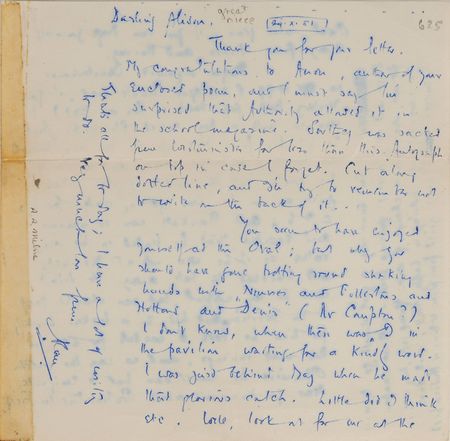 Darling Alison,
great niece
24.X.51
625
Thank you for your letter.
My congratulations to Anon, author of your
enclosed poem, and I must say I'm
surprised that Authority allowed it in
the school magazine. was sacked
from Westminster for less than this. Autograph
on top in case I forget. Cut along
dotted line, and I'll try to remember not
to write on the back of it..
You seem to have enjoyed
yourself at the Oval; but why you
should have gone trotting round shaking
hands with "Nourses and Tollertons and
Huttons and Denis" (Mr Compton?)
I don't know, when there was I in
the pavilion waiting for a kind word.
I was just behind Day when he made
that glorious catch. Little did I think
etc. look out for me at the
That's all for to-day; I have a lot of writing
to do. Very much love from
A A Milne